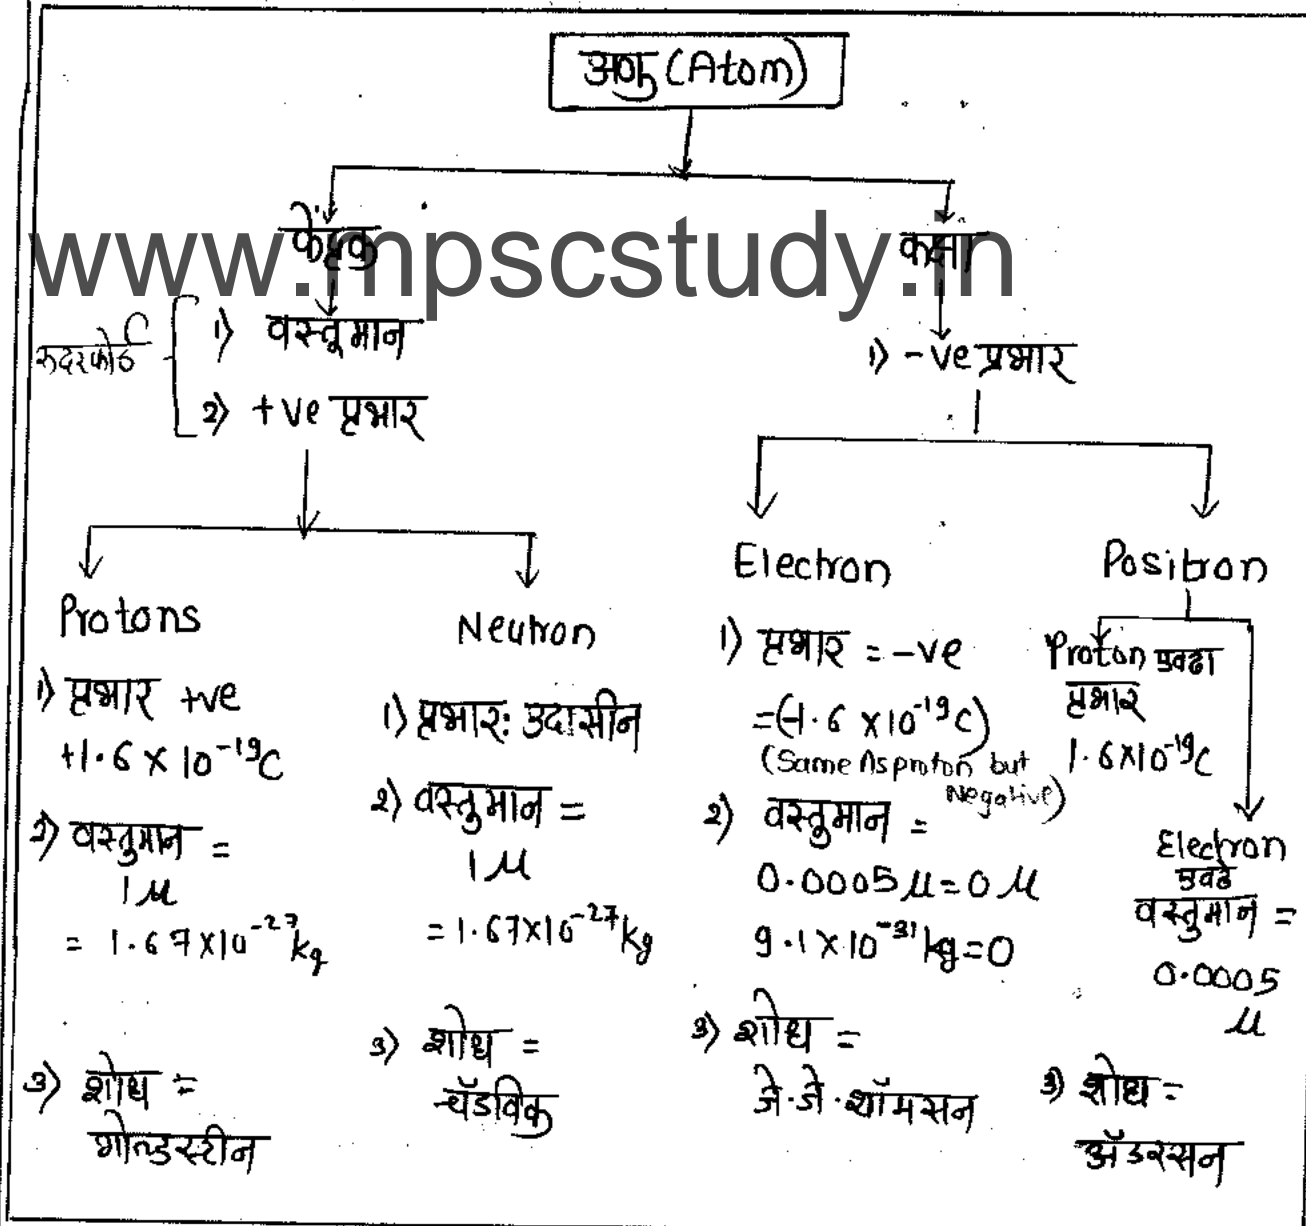 अणु (Atom)
केंद्रक
कक्षा
www.mpscstudy.in
रुदरफोर्ड
1) वस्तूमान
2) +ve प्रभार
1) -ve प्रभार
Protons
1) प्रभार +ve
+1.6 × 10⁻¹⁹C
2) वस्तुमान =
1 μ
= 1.67×10⁻²⁷kg
3) शोध =
गोल्डस्टीन
Neutron
1) प्रभार: उदासीन
2) वस्तुमान =
1 μ
= 1.67×10⁻²⁷kg
3) शोध =
चॅडविक
Electron
1) प्रभार = -ve
=(-1.6 ×10⁻¹⁹C)
(Same As proton but
Negative)
2) वस्तुमान =
0.0005 μ = 0 μ
9.1×10⁻³¹kg=0
3) शोध =
जे.जे.थॉमसन
Positron
Proton एवढा
प्रभार
1.6×10⁻¹⁹C
Electron
एवढे
वस्तुमान =
0.0005
μ
3) शोध =
अँडरसन